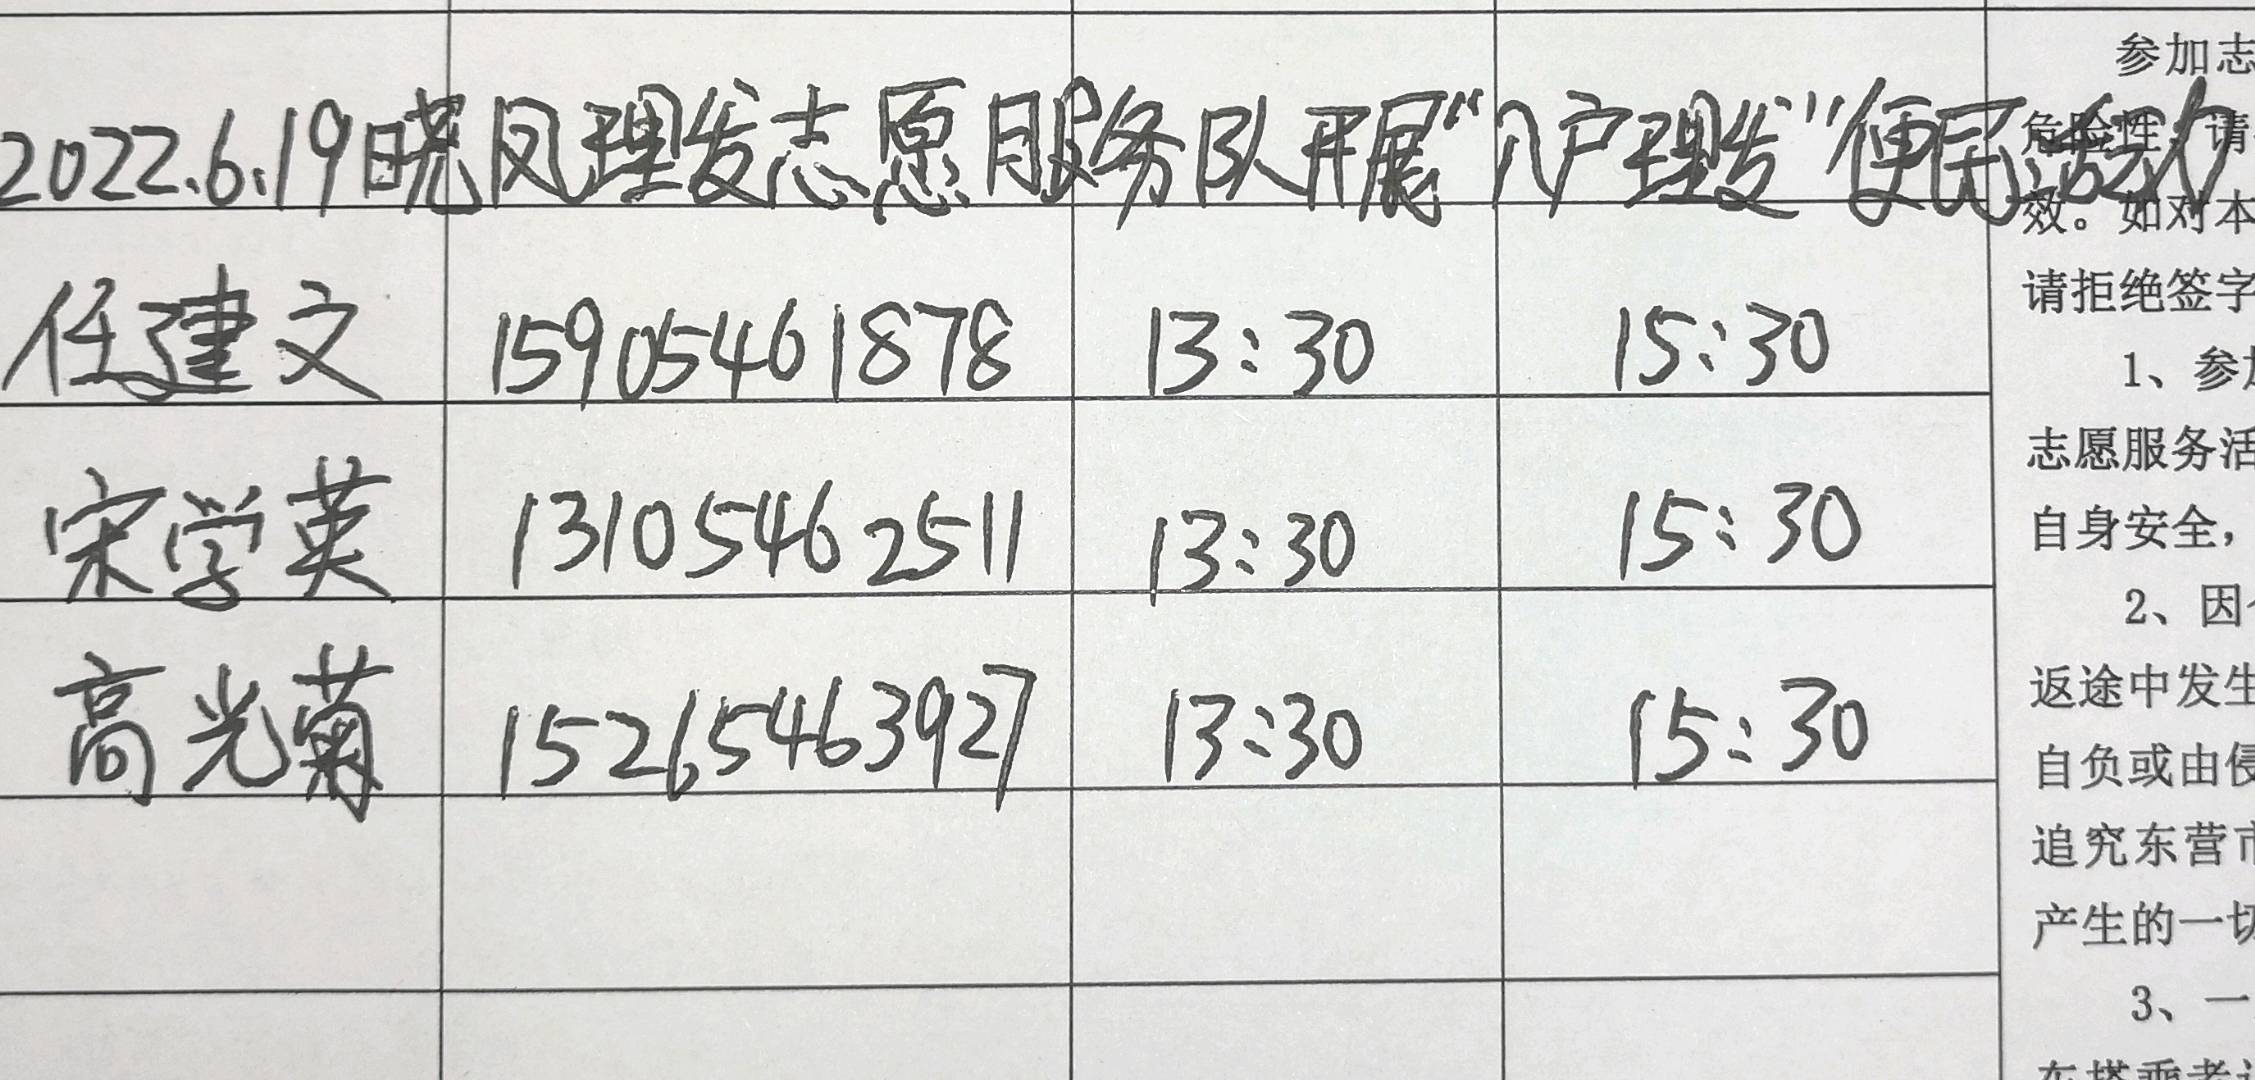 2022.6.19晓凤理发志愿服务队开展“入户理发”便民活动
任建文 15905461878 13:30 15:30
宋学英 13105462511 13:30 15:30
高光菊 15265463927 13:30 15:30
参加志
危险性，请
效。如对本
请拒绝签字
1、参加
志愿服务活
自身安全，
2、因个
返途中发生
自负或由侵
追究东营市
产生的一切
3、一
车搭乘者